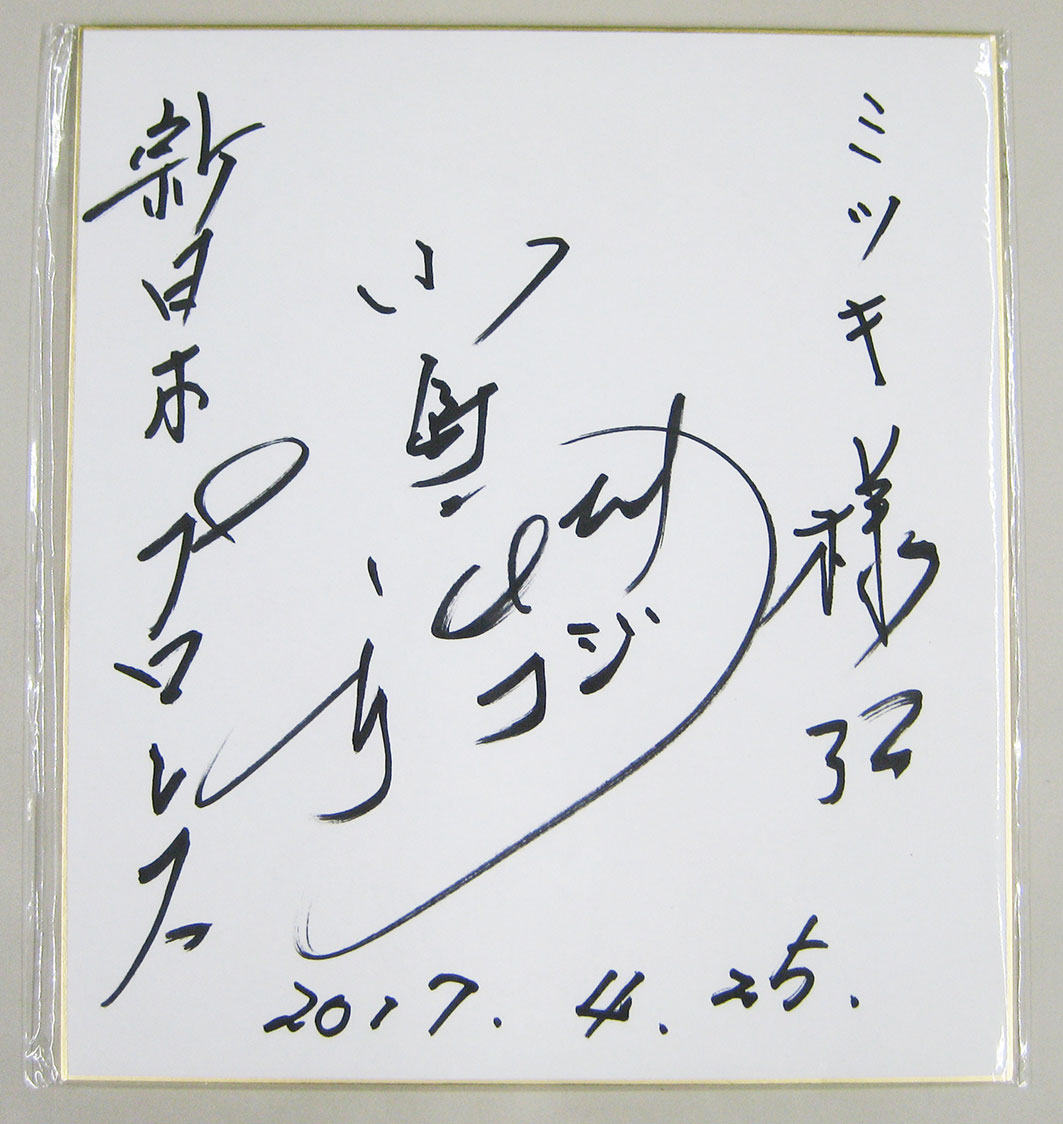 ミツキ様江
小島聡
コジ
新日本プロレス
2017.4.25.